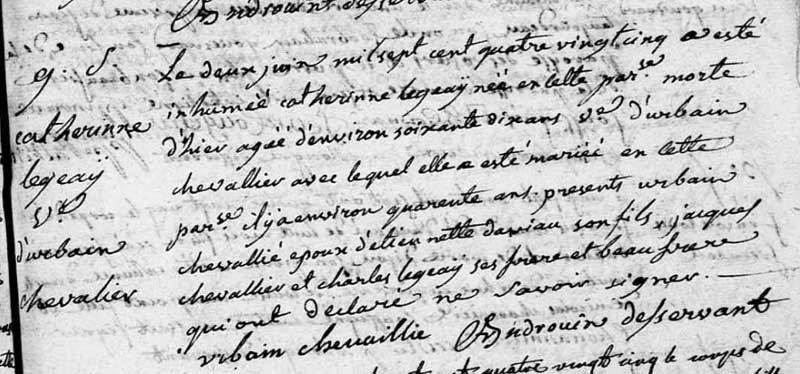 Gudrouin desservant
g. S.
catherinne
legeaÿ
v.e
d'urbain
chevalier
Le deux juin mil sept cent quatre vingt cinq a esté
inhuméé catherinne legeaÿ néé en cette par.se morte
d'hier agéé d'environ soixante dix ans v.e d'urbain
chevallier avec lequel elle a esté mariéé en cette
par.se il y a environ quarente ans. presents urbain
chevallié epoux d'elien nette daviau son fils, jacques
chevallier et charles legeaÿ ses frere et beau frere
qui ont déclaré ne savoir signer.
urbain chevaillie Gudrouin desservant
quatre vingt cinq le corps de